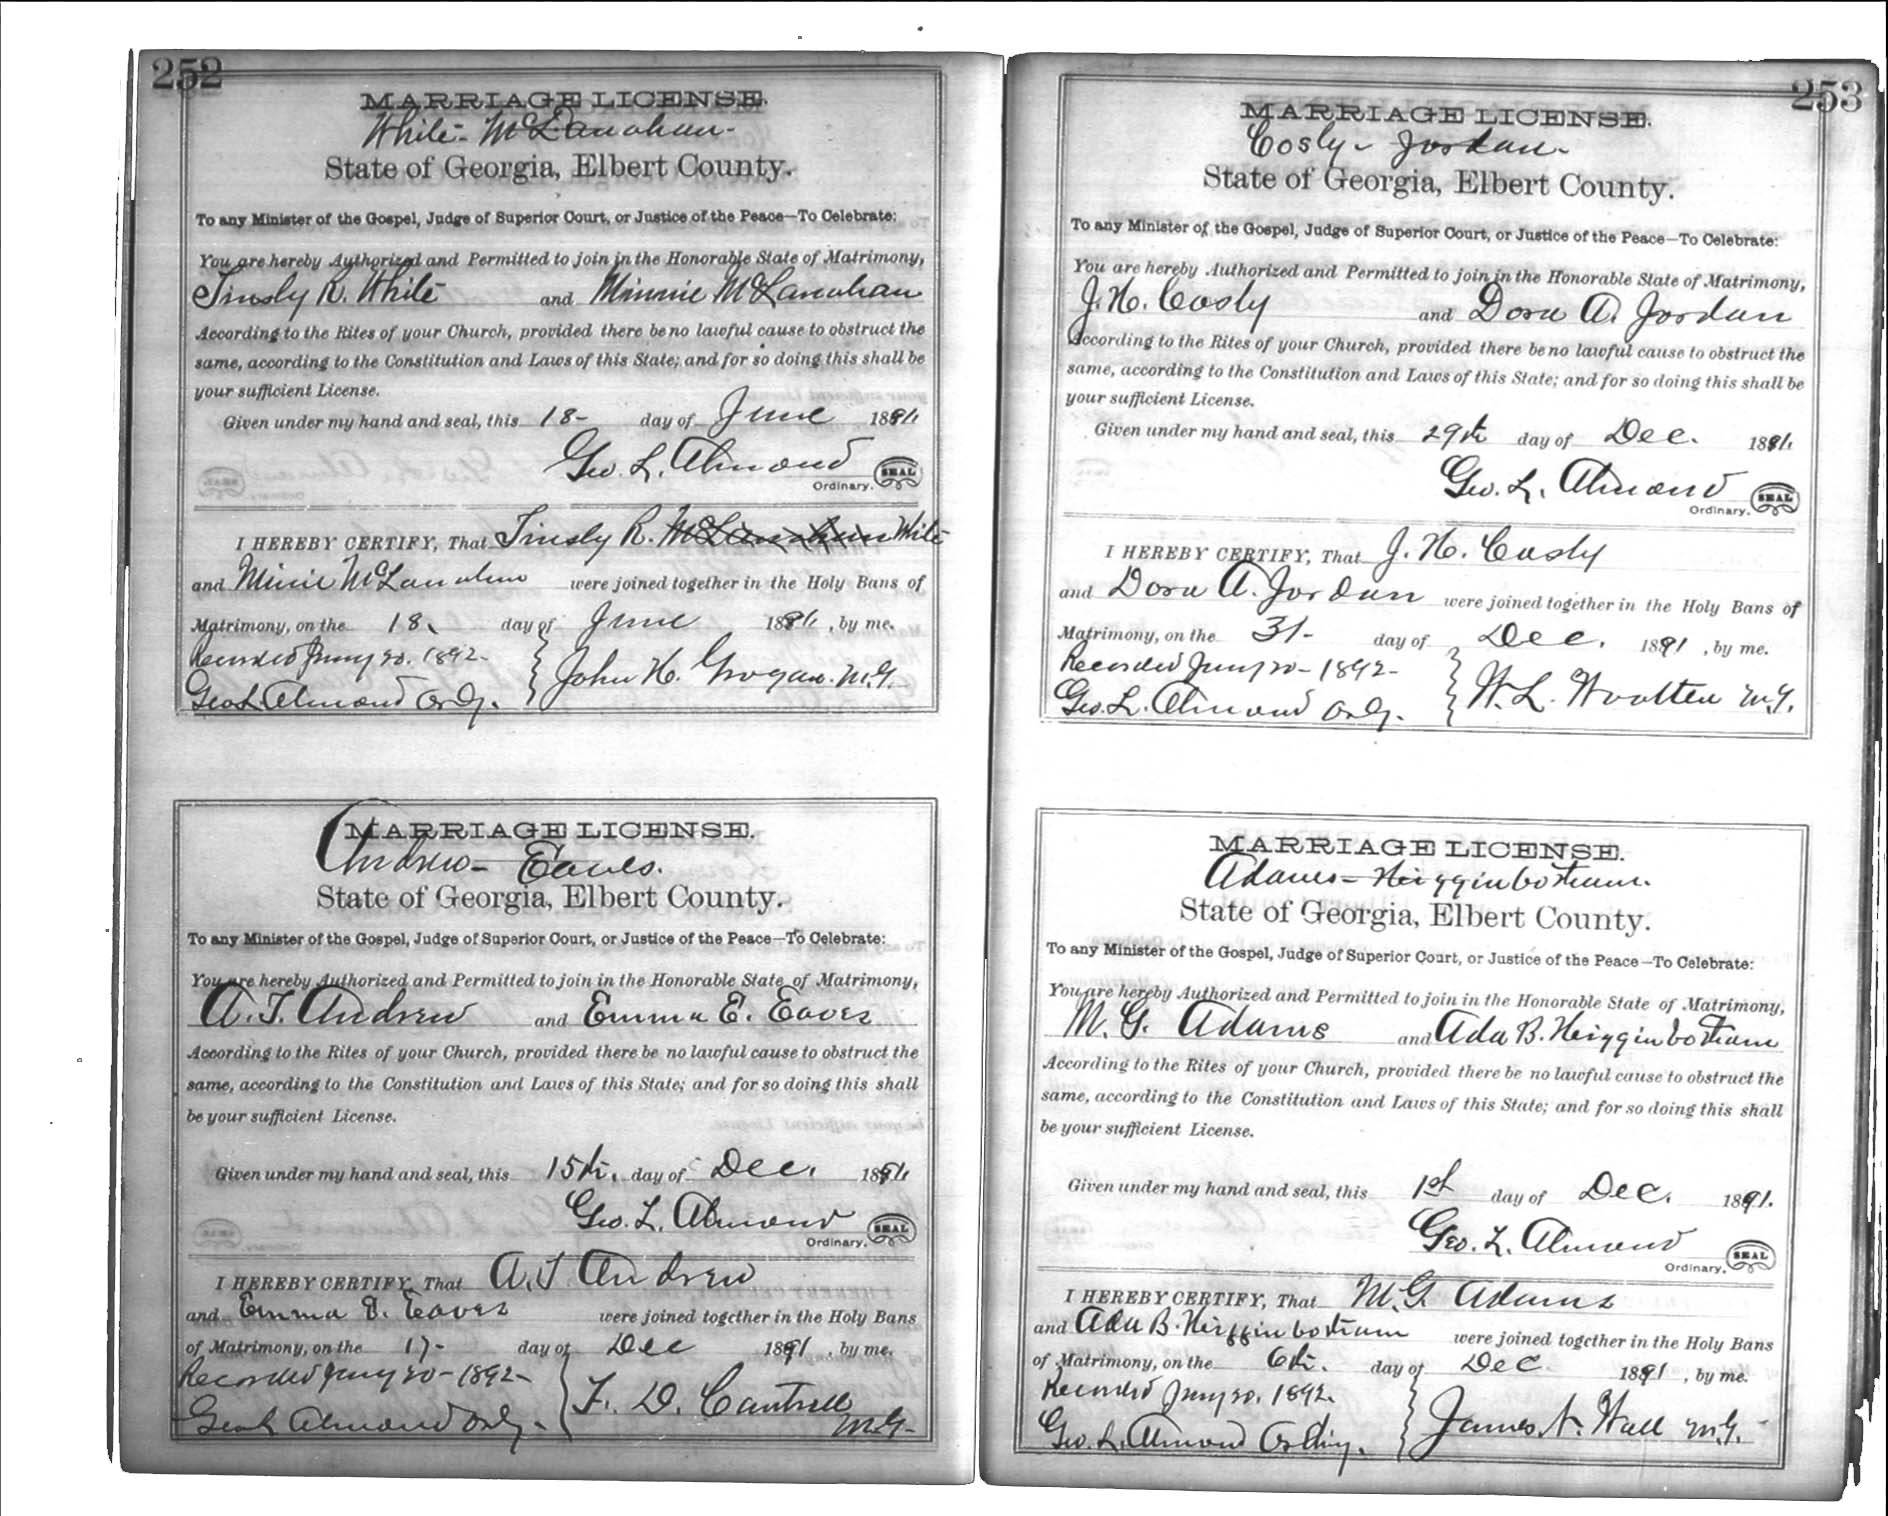 252
MARRIAGE LICENSE.
White - McLanahan -
State of Georgia, Elbert County.
To any Minister of the Gospel, Judge of Superior Court, or Justice of the Peace—To Celebrate:
You are hereby Authorized and Permitted to join in the Honorable State of Matrimony,
Tinsly R. White and Minnie McLanahan
According to the Rites of your Church, provided there be no lawful cause to obstruct the
same, according to the Constitution and Laws of this State; and for so doing this shall be
your sufficient License.
Given under my hand and seal, this 18- day of June 1891.
Geo. L. Almond
SEAL
Ordinary.
I HEREBY CERTIFY, That Tinsly R. McLanahan White
and Minie McLanahan were joined together in the Holy Bans of
Matrimony, on the 18. day of June 1891, by me.
Recorded Jany 20. 1892-
John H. Grogan. M.G.
Geo L. Almond Ordy.
MARRIAGE LICENSE.
Andrew - Eaves.
State of Georgia, Elbert County.
To any Minister of the Gospel, Judge of Superior Court, or Justice of the Peace—To Celebrate:
You are hereby Authorized and Permitted to join in the Honorable State of Matrimony,
A. T. Andrew and Emma E. Eaves
According to the Rites of your Church, provided there be no lawful cause to obstruct the
same, according to the Constitution and Laws of this State; and for so doing this shall
be your sufficient License.
Given under my hand and seal, this 15th. day of Dec. 1891.
Geo. L. Almond
SEAL
Ordinary.
I HEREBY CERTIFY, That A. T Andrew
and Emma E. Eaves were joined together in the Holy Bans
of Matrimony, on the 17- day of Dec 1891, by me.
Recorded Jany 20-1892-
F. D. Cantrell
M.G.
Geo L Almond Ordy.
253
MARRIAGE LICENSE.
Cosby - Jordan -
State of Georgia, Elbert County.
To any Minister of the Gospel, Judge of Superior Court, or Justice of the Peace—To Celebrate:
You are hereby Authorized and Permitted to join in the Honorable State of Matrimony,
J. H. Cosby and Dora A. Jordan
According to the Rites of your Church, provided there be no lawful cause to obstruct the
same, according to the Constitution and Laws of this State; and for so doing this shall be
your sufficient License.
Given under my hand and seal, this 29th day of Dec. 1891.
Geo. L. Almond
SEAL
Ordinary.
I HEREBY CERTIFY, That J. H. Cosby
and Dora A. Jordan were joined together in the Holy Bans of
Matrimony, on the 31- day of Dec. 1891, by me.
Recorded Jany 20-1892-
W. L. Wootten M.G.
Geo. L. Almond Ordy.
MARRIAGE LICENSE.
Adams - Heigginbotham.
State of Georgia, Elbert County.
To any Minister of the Gospel, Judge of Superior Court, or Justice of the Peace—To Celebrate:
You are hereby Authorized and Permitted to join in the Honorable State of Matrimony,
M. G. Adams and Ada B. Heigginbotham
According to the Rites of your Church, provided there be no lawful cause to obstruct the
same, according to the Constitution and Laws of this State; and for so doing this shall
be your sufficient License.
Given under my hand and seal, this 1st day of Dec. 1891.
Geo. L. Almond
SEAL
Ordinary.
I HEREBY CERTIFY, That M. G Adams
and Ada B. Heigginbotham were joined together in the Holy Bans
of Matrimony, on the 6th. day of Dec 1891, by me.
Recorded Jany 20. 1892.
James N. Wall M.G.
Geo. L. Almond Ordiny.